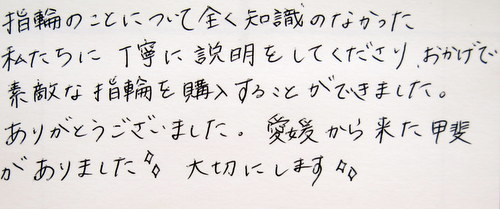 指輪のことについて全く知識のなかった
私たちに丁寧に説明をしてくださり、おかげで
素敵な指輪を購入することができました。
ありがとうございました。愛媛から来た甲斐
がありました✧ 大切にします✧